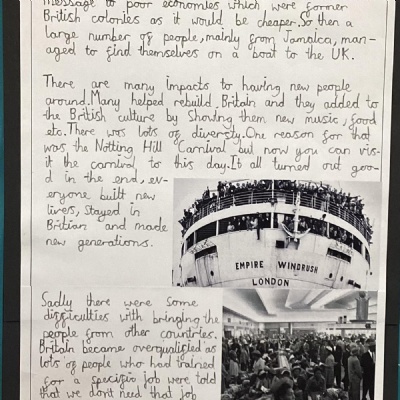 message to poor economies which were former
British colonies as it would be cheaper. So then a
large number of people, mainly from Jamaica, man-
aged to find themselves on a boat to the UK.
There are many impacts to having new people
around. Many helped rebuild Britain and they added to
the British culture by Showing them new music, food
etc. There was lots of diversty. One reason for that
was the Notting Hill Carnival but now you can vis-
it the carnival to this day. It all turned out goo-
d in the end, ev-
eryone built new
lives, stayed in
Britian and made
new generations.
EMPIRE WINDRUSH
LONDON
Sadly there were some
difficulties with bringing the
people from other countries.
Britain became overqualified as
lots of people who had trained
for a specific job were told
that we don't need that job